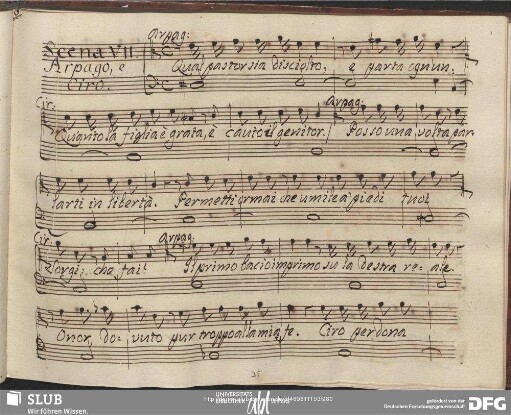 Arpag:
Scena VII.
Arpago, e
Ciro.
Quel pastor sia disciolto, e parta ognun.
Cir: Arpag:
Quanto la figlia è grata, è cauto il genitor. Posso una volta, par
larti in libertà. Permetti ormai che umile a' piedi tuoi
Cir: Arpag:
Sorgi; che fai? Il primo bacio imprimo su la destra reale.
Onor, dovuto pur troppo alla mia fe. Ciro perdona
SLUB
Wir führen Wissen.
gefördert von der
Deutschen Forschungsgemeinschaft
DFG